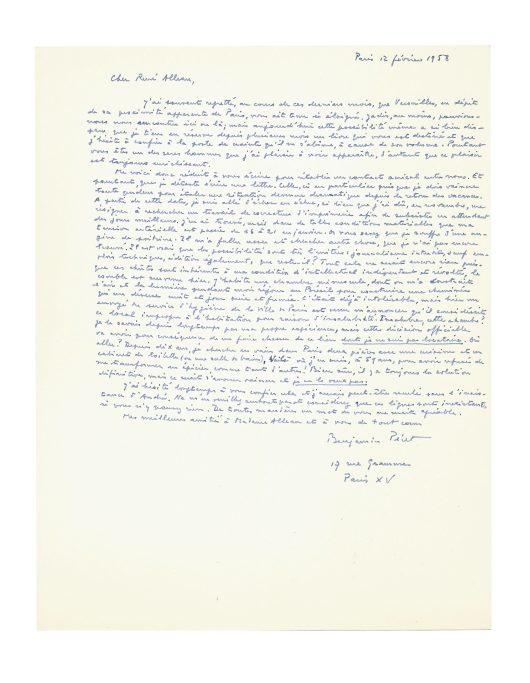 Paris 12 février 1958
Cher René Alleau,
J'ai souvent regretté, au cours de ces derniers mois, que Versailles, en dépit
de sa proximité apparente de Paris, vous ait tenu si éloigné, jadis, au moins, pouvions-
nous nous rencontrer ici ou là; mais aujourd'hui cette possibilité même a si bien dis-
paru que je tiens en réserve depuis plusieurs mois un livre qui vous est destiné et que
j'hésite à confier à la poste de crainte qu'il ne s'abîme, à cause de son volume. Pourtant
vous êtes un des rares hommes que j'ai plaisir à voir apparaître, d'autant que ce plaisir
est toujours enrichissant.
Me voici donc réduit à vous écrire pour rétablir un contact amical entre nous. Et
pourtant, que je déteste écrire une lettre. Celle-ci en particulier puisque je dois vaincre
toute pudeur pour étaler une situation devenue dramatique depuis le retour des vacances.
A partir de cette date, je suis allé d'échec en échec, si bien que j'ai dû, en novembre, me
résigner à rechercher un travail de correcteur d'imprimerie afin de subsister en attendant
des jours meilleurs. J'en ai trouvé, mais dans de telles conditions matérielles que ma
tension artérielle est passée de 16 à 21 en janvier. Or vous savez que je souffre d'une an-
gine de poitrine. Il m'a fallu cesser et chercher autre chose, que je n'ai pas encore
trouvé. Il est vrai que les possibilités sont très limitées: journalisme interdit, sauf
plus technique, édition également, que reste-t-il? Tout cela ne serait encore rien puis-
que ces aléas sont inhérents à ma condition d'intellectuel indépendant et révolté, le
comble est survenu hier. J'habite une chambre minuscule, dont on m'a
l'air et la lumière pendant mon séjour au Brésil pour construire une cheminée
qui me dessèche nuit et jour suie et fumée. C'était déjà intolérable, mais hier un
envoyé du service d'hygiène de la Ville de Paris est venu m'annoncer qu'il considérait
ce local impropre à l'habitation pour raison d'insalubrité. Insalubre, cette chambre?
Je le savais depuis longtemps par ma propre expérience, mais cette décision officielle
va avoir pour conséquence de me faire chasser de ce lieu dont je ne suis pas locataire. Où
aller? Depuis 8 ans, je cherche en vain dans Paris deux pièces avec une cuisine et un
cabinet de toilette (ou une salle de bains). Voilà où j'en suis, à 59 ans, pour avoir refusé de
me transformer en épicier comme tant d'autres! Bien sûr, il y a toujours la solution
définitive, mais ce serait s'avouer vaincu et je ne le veux pas.
J'ai hésité longtemps à vous confier cela et j'aurais peut-être reculé sans l'insis-
tance d'André. Ne m'en veuillez surtout pas et considérez que ces lignes sont inexistantes,
si vous n'y pouvez rien. De toute manière un mot de vous me serait agréable.
Mes meilleures amitiés à Madame Alleau et à vous de tout cœur
Benjamin Péret
17 rue Gramme
Paris XV